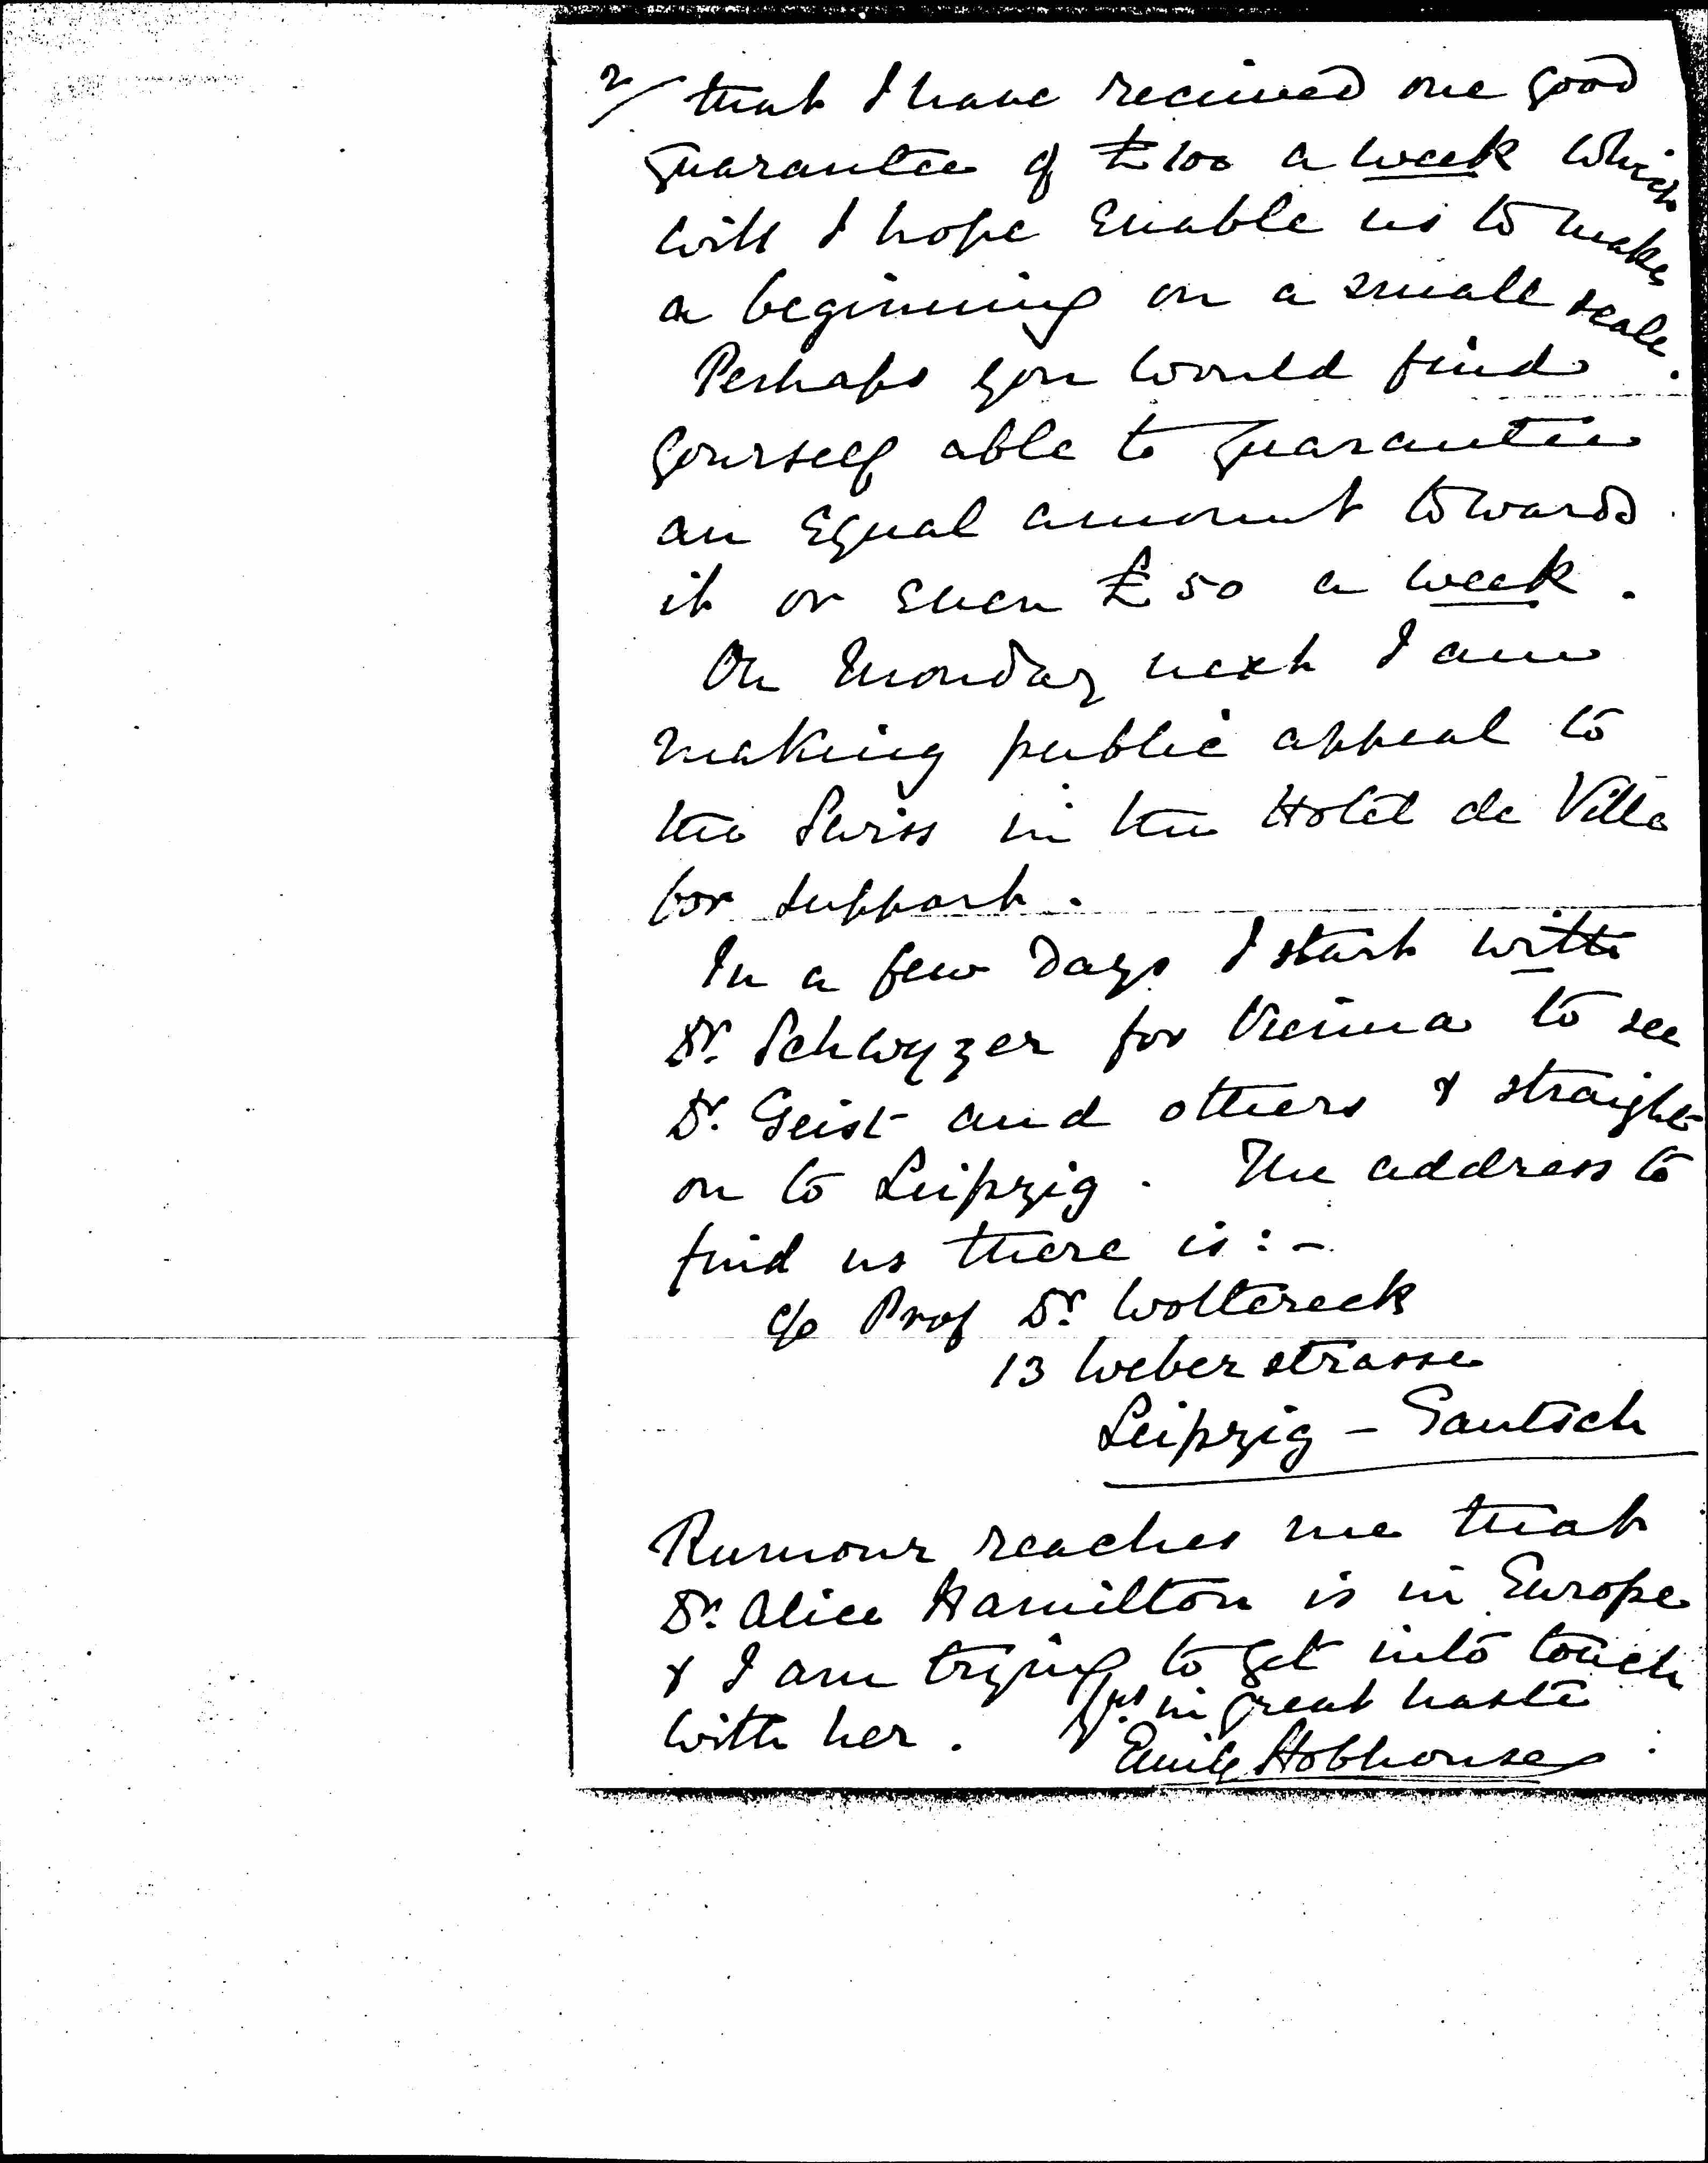 2/ that I have received one good
guarantee of £100 a week which
will I hope enable us to make
a beginning on a small scale.
Perhaps you would find
yourself able to guarantee
an equal amount towards
it or even £50 a week.
On Monday next I am
making public appeal to
the Swiss in the Hotel de Ville
for support.
In a few days I start with
Dr. Schwyzer for Vienna to see
Dr. Geist and others & straight
on to Leipzig. The address to
find us there is:-
c/o Prof Dr. Woltereck
13 Weberstrasse
Leipzig - Gautsch
Rumour reaches me that
Dr. Alice Hamilton is in Europe
& I am trying to get into touch
with her. Yrs. in great haste
Emily Hobhouse